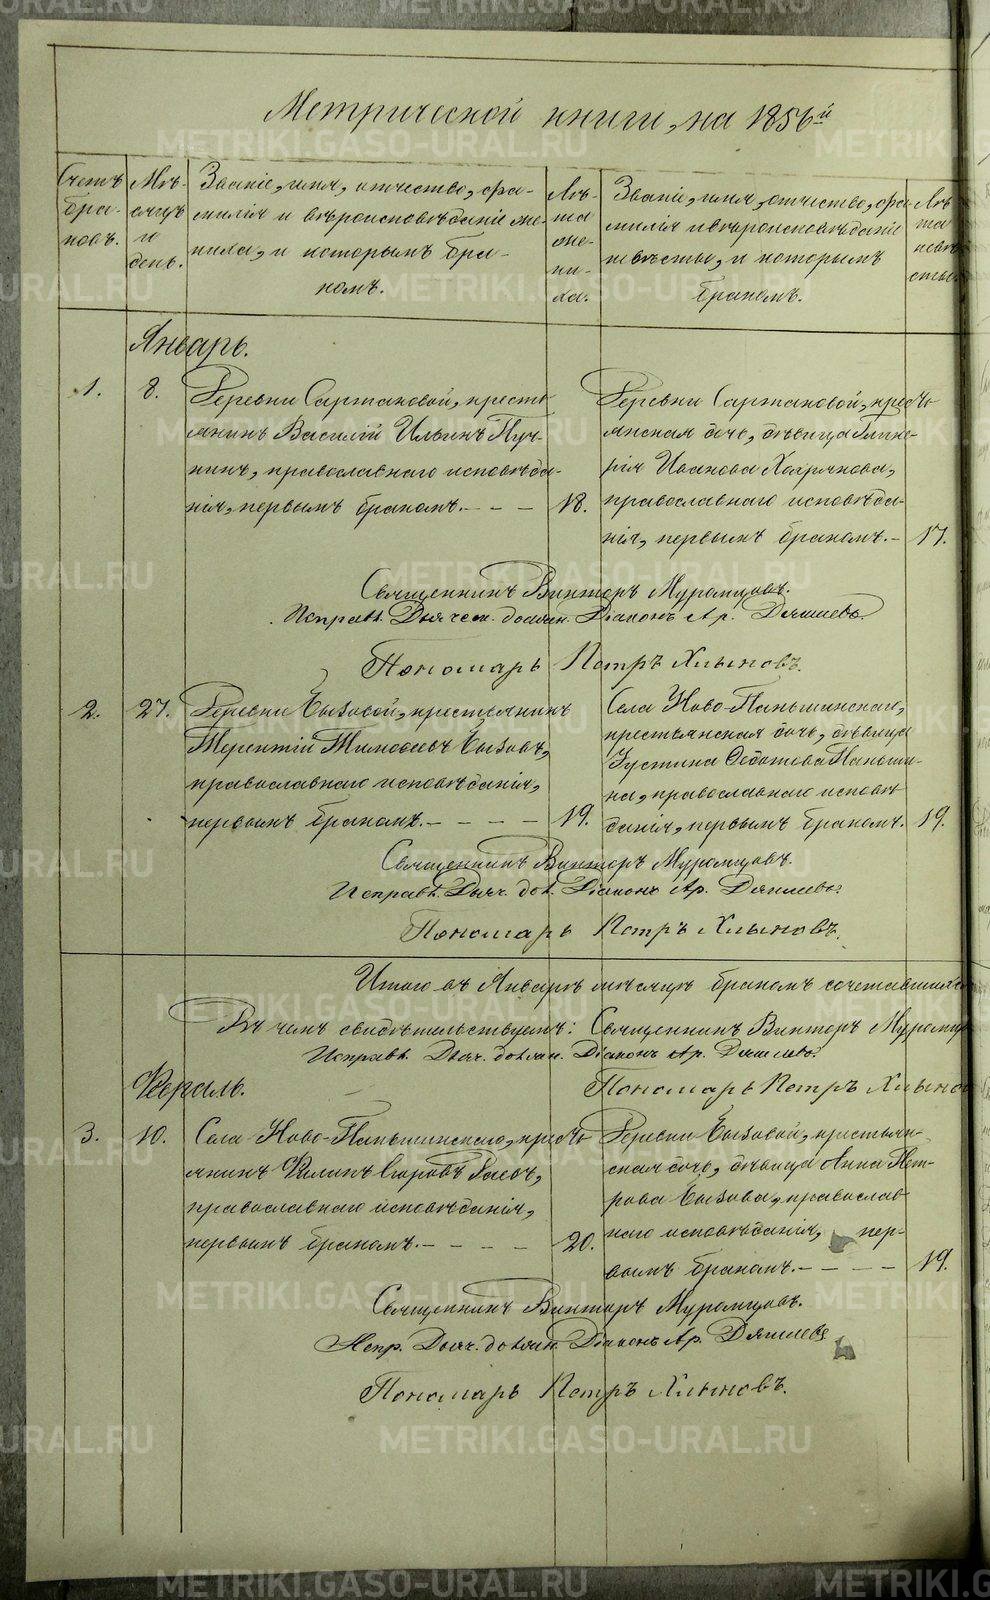 Метрической книги, на 1856й
Счетъ бра- ковъ.
Мѣ- сяцъ и день.
Званіе, имя, отчество, фа-
милія и вѣроисповѣданіе же-
ниха, и которымъ бра-
комъ.
Лѣ- та же- ни- ха.
Званіе, имя, отчество, фа-
милія и вѣроисповѣданіе
невѣсты, и которымъ
бракомъ.
Лѣ та невѣ сты.
Январь.
1. 8.
Деревни Сартаковой, кресть
янинъ Василій Ильинъ Пуч-
кинъ, православнаго исповѣда-
нія, первымъ бракомъ. - - - 18.
Деревни Сартаковой, кресть
янская дочь, дѣвица Глике-
рія Иванова
православнаго исповѣда-
нія, первымъ бракомъ. - 17.
Священникъ Викторъ Муромцовъ.
Исправл. Дьяческ. должн. Діаконъ Ар.
Пономарь Петръ Хлыновъ.
2. 27.
Деревни Бызовой, крестьянинъ
Терентій Тимоѳеевъ Бызовъ,
православнаго исповѣданія,
первымъ бракомъ. - - - - 19.
Села Ново-Паньшинскаго,
крестьянская дочь, дѣвица
Устина Ѳедотова Паньши-
на, православнаго исповѣ
данія, первымъ бракомъ. 19.
Священникъ Викторъ Муромцовъ.
Исправл. Дьяч. дол. Діаконъ Ар.
Пономарь Петръ Хлыновъ.
Итого въ Январѣ мѣсяцѣ бракомъ сочетавшихся
Въ чемъ свидѣтельствуемъ: Священникъ Викторъ Муромцо
Исправл. Дьяч. должн. Діаконъ Ар.
Пономарь Петръ Хлыно
Февраль.
3. 10.
Села Ново-Паньшинскаго, кресть
янинъ Филипъ Егоровъ
православнаго исповѣданія,
первымъ бракомъ. - - - - 20.
Деревни Бызовой, крестьян-
ская дочь, дѣвица Анна Пет-
рова Бызова, православ
наго исповѣданія, пер-
вымъ бракомъ. - - - - 19.
Священникъ Викторъ Муромцовъ.
Испр. Дьяч. должн. Діаконъ Ар.
Пономарь Петръ Хлыновъ.
METRIKI.GASO-URAL.RU